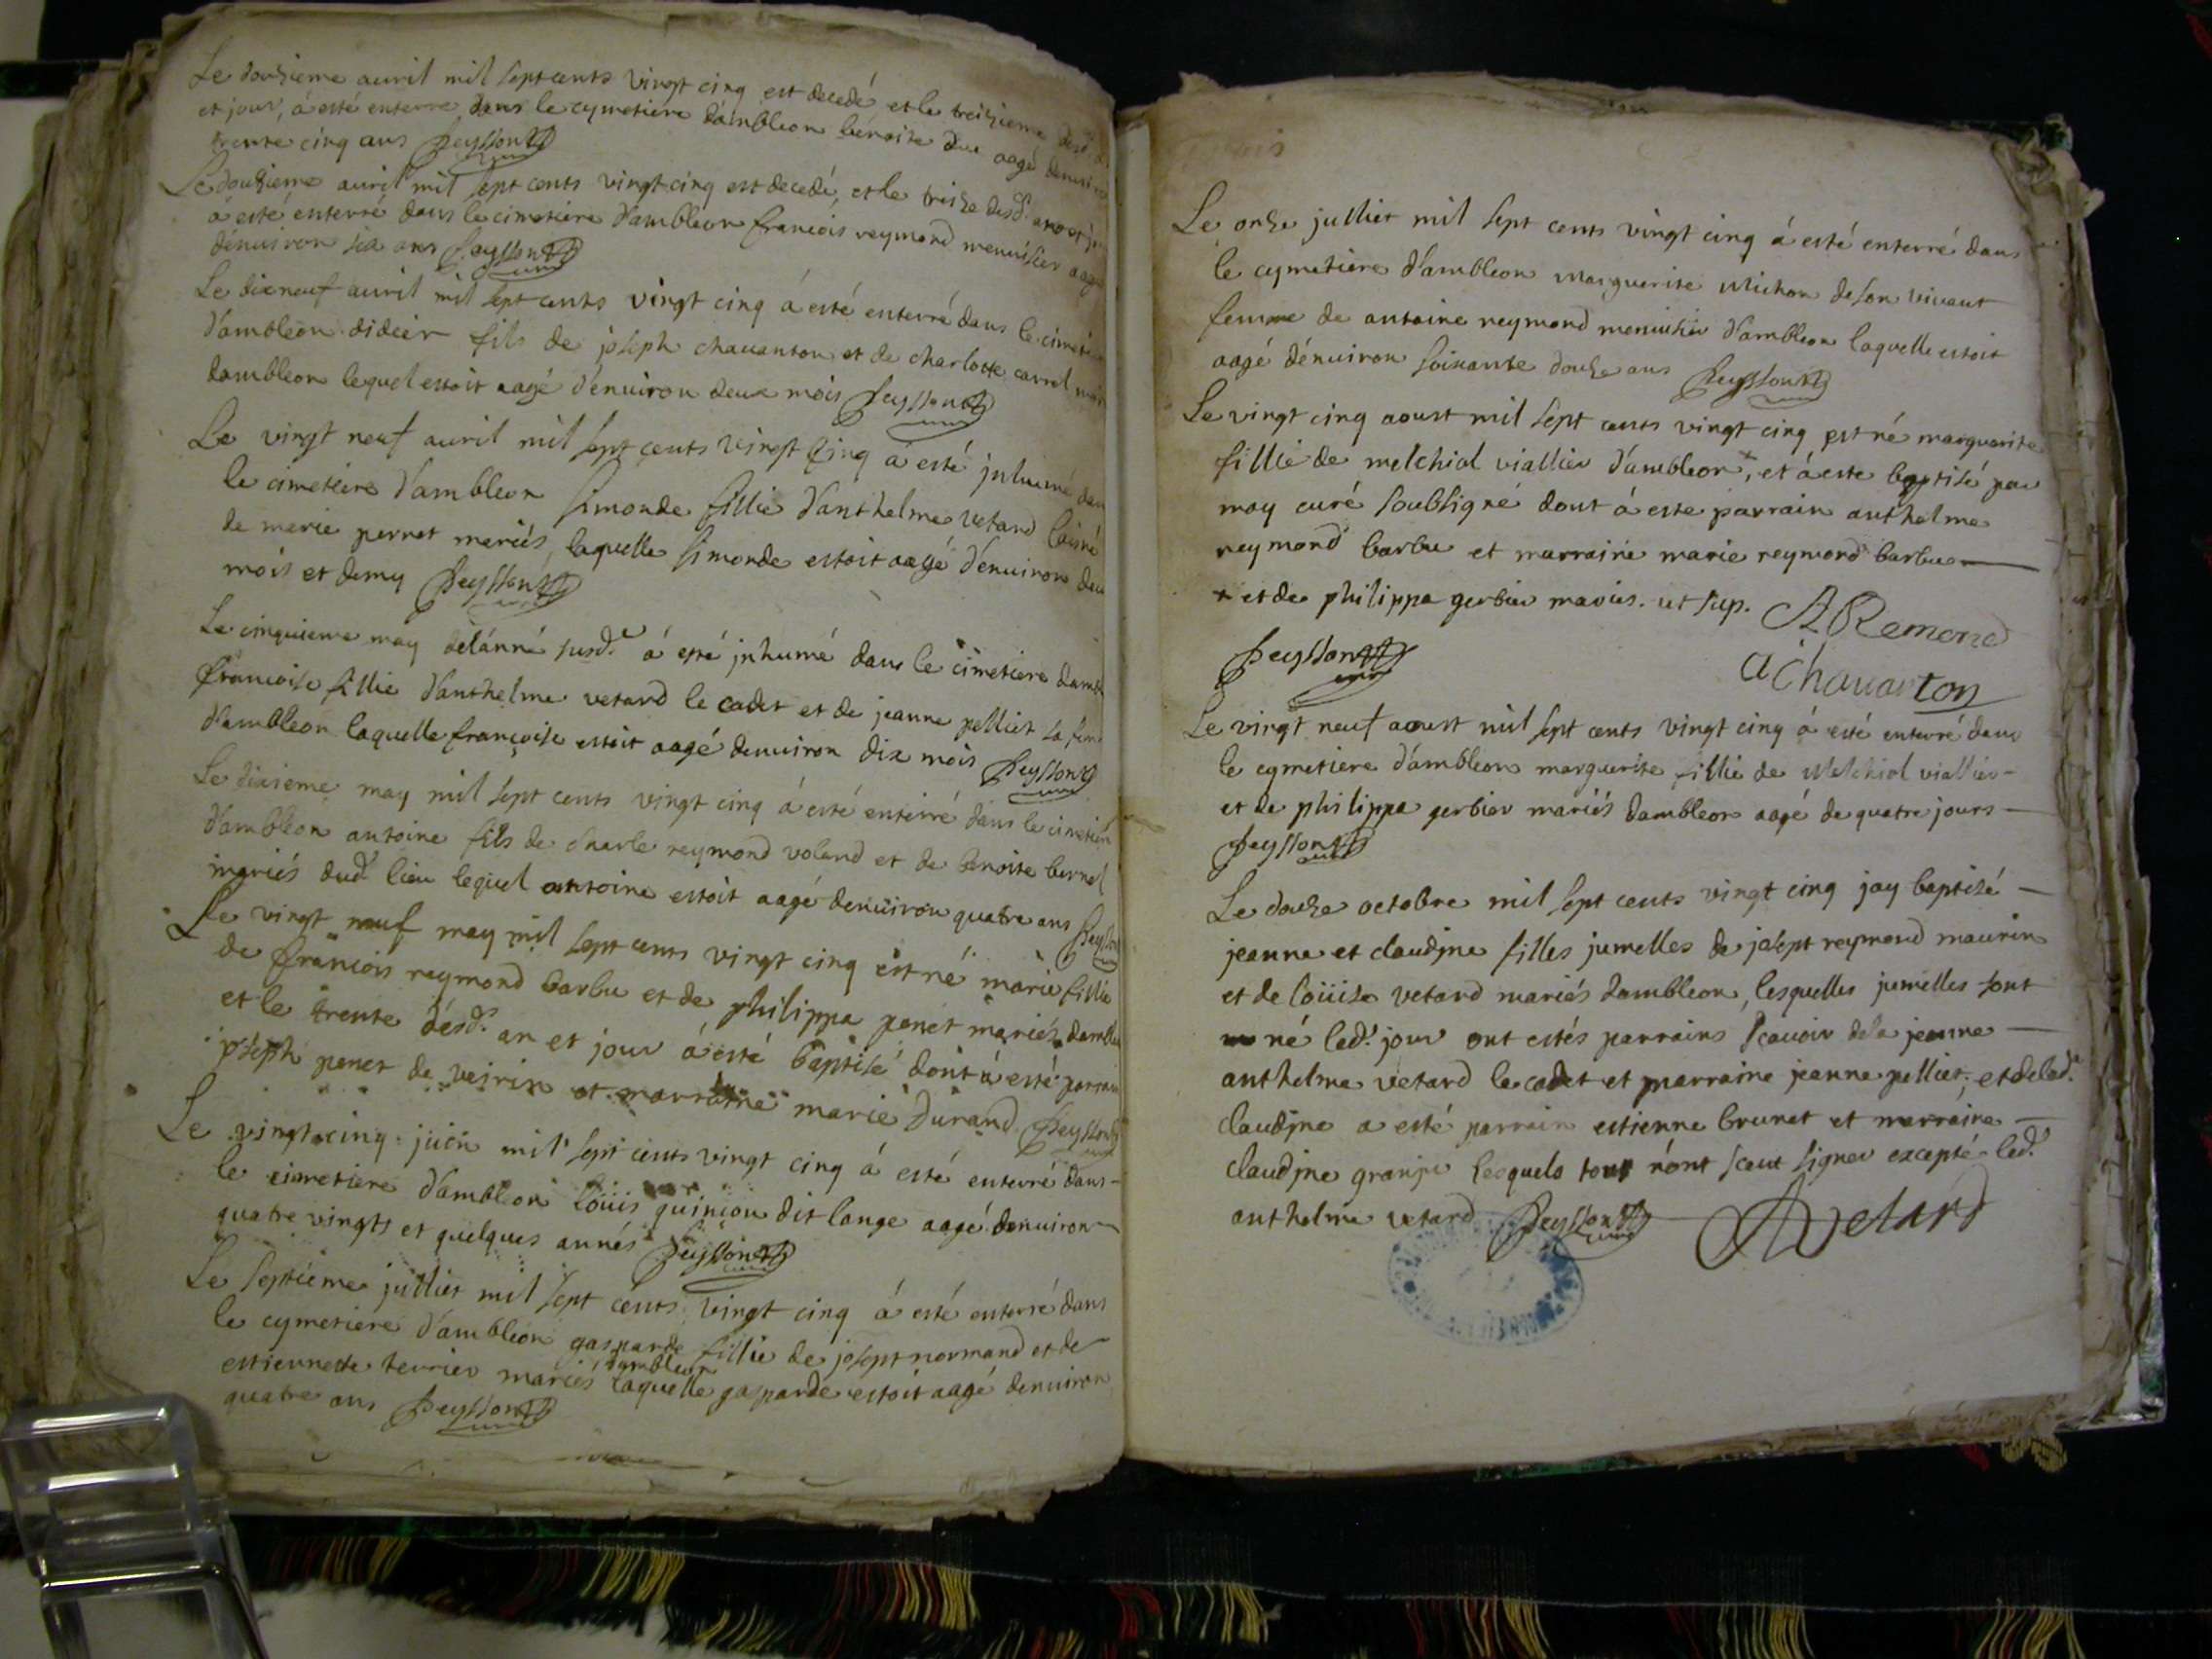 Le douzieme auril mil sept cents vingt cinq est decedé et le treizieme
et jour, á esté enterre dans le cymetiere d'ambleon benoite aagé denuiron
trente cinq ans Peysson
Le douzieme auril mil sept cents vingt cinq est decedé, et le treize desd. an et
á esté enterré dans le cimetiere d'ambleon francois reymond menuisier aagé
dénuiron six ans Peysson
Le dixneuf auril mil sept cents vingt cinq á esté enterré dans le
d'ambleon didier fils de joseph chauanton et de charlotte carrel
dambleon lequel estoit aagé d'enuiron deux mois Peysson
Le vingt neuf auril mil sept cents vingt cinq á esté jnhumé
le cimetiere d'ambleon simonde fillie d'anthelme vetard laisné
de marie perret mariés, laquelle simonde estoit aagé d'enuiron
mois et demy Peysson
Le cinquieme may delánné susd. á esté jnhumé dans le cimetiere
francoise fillie d'anthelme vetard le cadet et de jeanne pelliet sa
d'ambleon laquelle françoise estoit aagé denuiron dix mois Peysson
Le dixieme may mil sept cents vingt cinq á esté enterré dans le
d'ambleon antoine fils de charle reymond voland et de benoite
mariés dud. lieu lequel antoine estoit aagé denuiron quatre ans
Le vingt neuf may mil sept cents vingt cinq est né marie fillie
de francois reymond barbu et de philippa penet mariés
et le trente desd. an et jour á esté baptisé dont á esté
joseph penet de veirin et marraine marie durand Peysson
Le vingt cinq juin mil sept cents vingt cinq á esté enterré dans
le cimetiere d'ambleon loüis guinion dit lange aagé denuiron
quatre vingts et quelques annés Peysson
Le septieme julliet mil sept cents vingt cinq á esté enterré dans
le cymetiere d'ambleon gasparde fillie de josept normand et de
dambleon
estiennette terrier mariés laquelle gasparde estoit aagé denuiron
quatre ans Peysson
Le onze julliet mil sept cents vingt cinq á esté enterré dans
le cymetiere d'ambleon marguerite michon de son viuant
femme de antoine reymond menuisier d'ambleon laquelle estoit
aagé dénuiron soixante douze ans Peysson
Le vingt cinq aoust mil sept cents vingt cinq est né marguerite
fillie de melchiol viallier d'ambleon +, et á este baptisé par
moy curé soubsigné dont á este parrain anthelme
reymond barbu et marraine marie reymond barbue
+ et de philippa gerbier mariés. ut sup. A Remond
Peysson
a chauanton
Le vingt neuf aoust mil sept cents vingt cinq á esté enterré dans
le cymetiere d'ambleon marguerite fillie de Melchiol viallier
et de philippa gerbier mariés dambleon aagé de quatre jours
Peysson
Le douze octobre mil sept cents vingt cinq jay baptisé
jeanne et claudjne filles jumelles de josept reymond maurin
et de loüise vetard mariés dambleon, lesquelles jumelles sont
né led. jour ont estés parrains scauoir de la jeanne
anthelme vetard le cadet et marraine jeanne pelliet, et de lad.
claudjne a esté parrain estienne brunet et marraine
claudjne lesquels tous n'ont sceut signer excepté led.
anthelme vetard Peysson A vetard